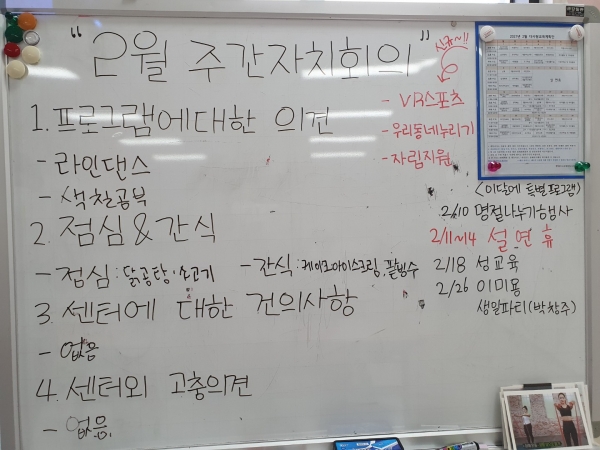 "2월 주간자치회의"
신규~!!
- VR스포츠
- 우리동네누리기
- 자립지원
1. 프로그램에대한 의견
- 라인댄스
- 색칠공부
2. 점심 & 간식
- 점심 : 닭곰탕·소고기 - 간식 : 케이크아이스크림, 팥빙수
3. 센터에 대한 건의사항
- 없음
4. 센터외 고충의견
- 없음.
<이달에 특별프로그램>
2/10 명절나누기행사
2/11~14 설 연 휴
2/18 성교육
2/26 이미용
생일파티(박창주)